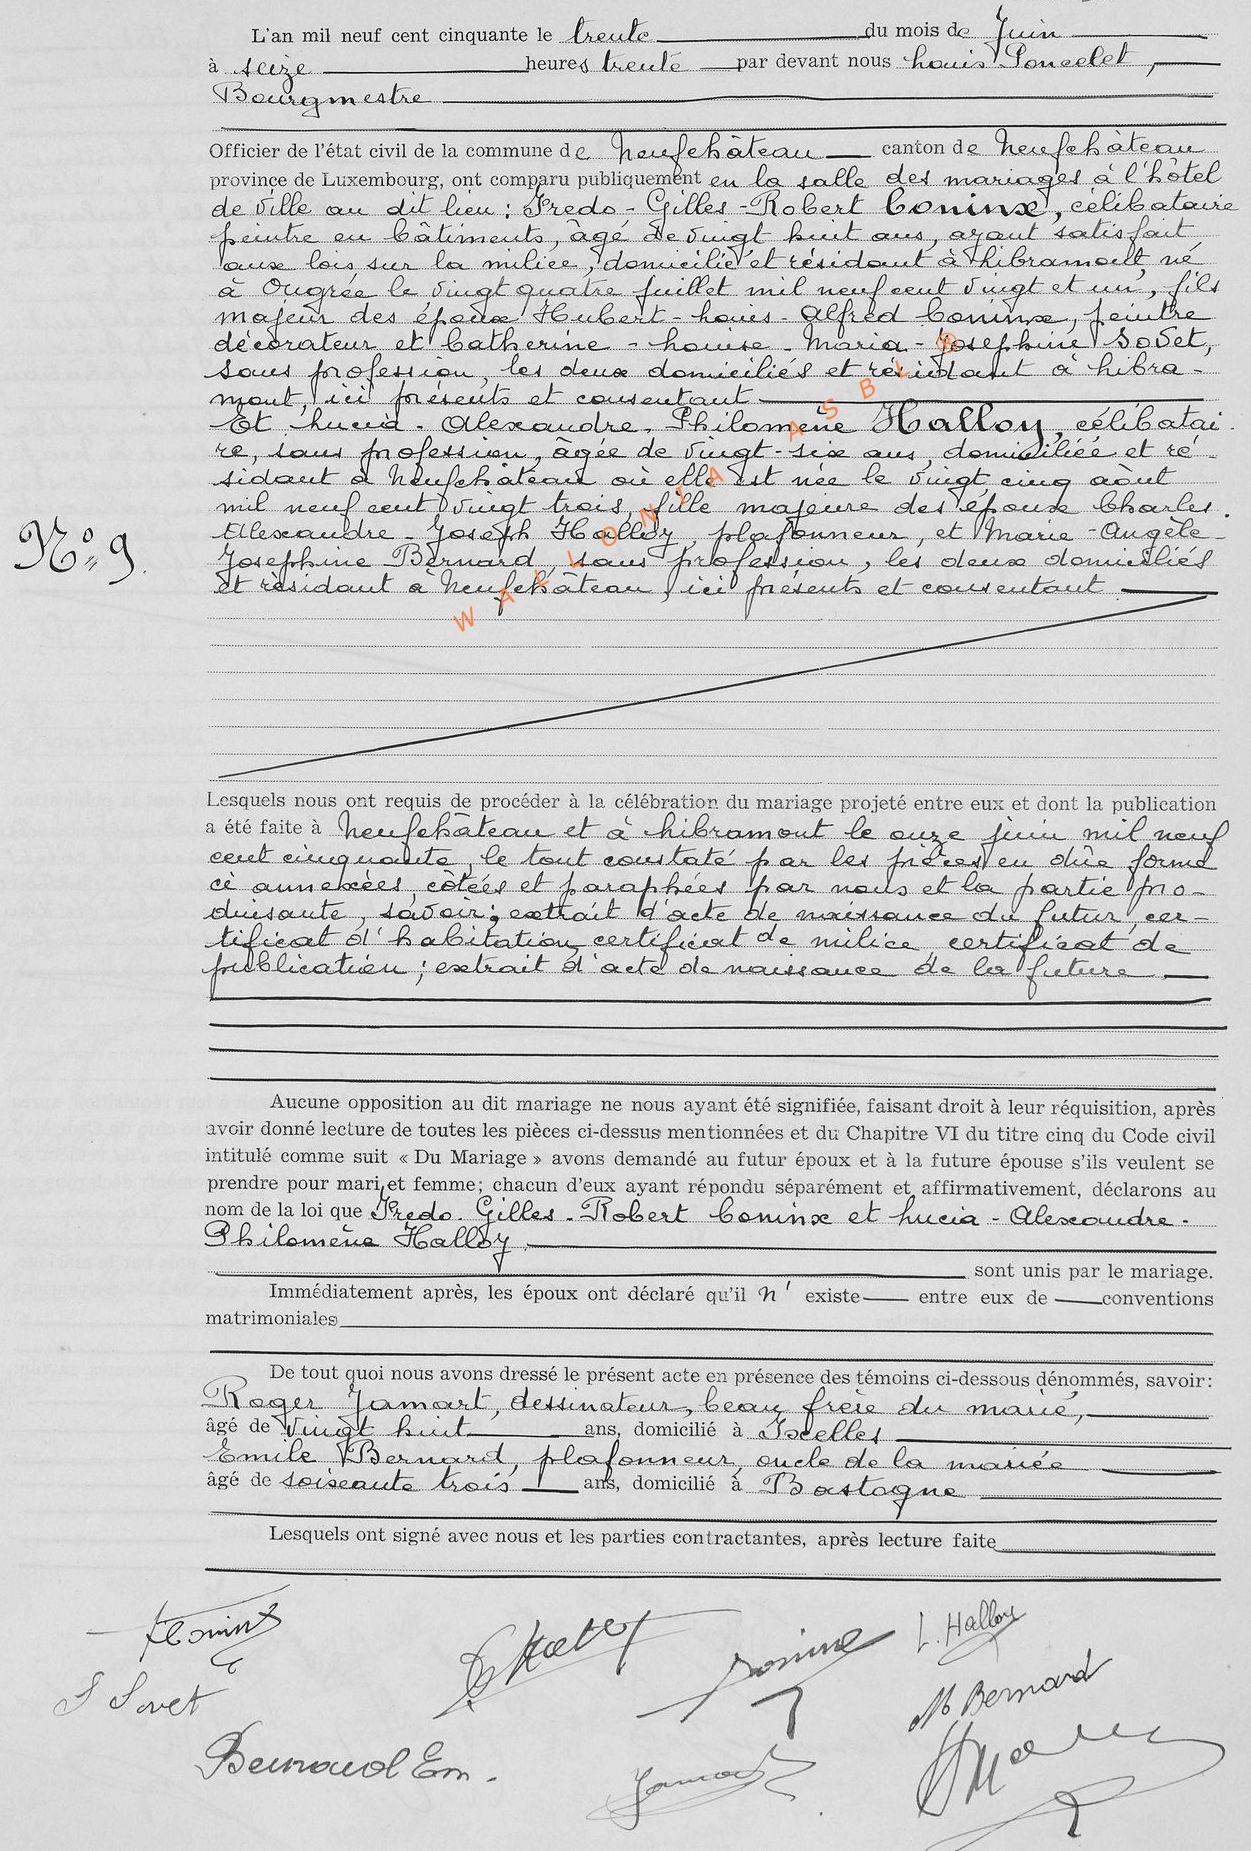 L'an mil neuf cent cinquante le trente du mois de Juin
à seize heures trente par devant nous Louis Poncelet,
Bourgmestre
Officier de l'état civil de la commune de Neufchâteau canton de Neufchâteau
province de Luxembourg, ont comparu publiquement en la salle des mariages à l'hôtel
de ville au dit lieu : Fredo - Gilles - Robert Coninx, célibataire
peintre en bâtiments, âgé de vingt huit ans, ayant satisfait
aux lois sur la milice, domicilié et résidant à Libramont, né
à Ougrée le vingt quatre juillet mil neuf cent vingt et un, fils
majeur des époux Hubert - Louis - Alfred Coninx, peintre
décorateur et Catherine - Louise - Maria - Josephine Sovet,
sans profession, les deux domiciliés et résidant à Libra-
mont, ici présents et consentant
Et Lucia - Alexandre - Philomène Halloy, célibatai-
re, sans profession, âgée de vingt-six ans, domiciliée et ré-
sidant à Neufchâteau où elle est née le vingt cinq août
mil neuf cent vingt trois, fille majeure des époux Charles-
Alexandre - Joseph Halloy, plafonneur, et Marie - Angèle -
N° 9.
Josephine Bernard, sans profession, les deux domiciliés
et résidant à Neufchâteau, ici présents et consentant
WALLONIA ASBL ®
Lesquels nous ont requis de procéder à la célébration du mariage projeté entre eux et dont la publication
a été faite à Neufchâteau et à Libramont le onze juin mil neuf
cent cinquante, le tout constaté par les pièces en dûe forme
ci annexées, côtées et paraphées par nous et la partie pro-
duisante, savoir : extrait d'acte de naissance du futur, cer-
tificat d'habitation, certificat de milice, certificat de
publication ; extrait d'acte de naissance de la future
Aucune opposition au dit mariage ne nous ayant été signifiée, faisant droit à leur réquisition, après
avoir donné lecture de toutes les pièces ci-dessus mentionnées et du Chapitre VI du titre cinq du Code civil
intitulé comme suit « Du Mariage » avons demandé au futur époux et à la future épouse s'ils veulent se
prendre pour mari et femme; chacun d'eux ayant répondu séparément et affirmativement, déclarons au
nom de la loi que Fredo - Gilles - Robert Coninx et Lucia - Alexandre -
Philomène Halloy
sont unis par le mariage.
Immédiatement après, les époux ont déclaré qu'il n' existe entre eux de conventions
matrimoniales
De tout quoi nous avons dressé le présent acte en présence des témoins ci-dessous dénommés, savoir:
Roger Jamart, dessinateur, beau frère du marié,
âgé de vingt huit ans, domicilié à Ixelles
Emile Bernard, plafonneur, oncle de la mariée
âgé de soixante trois ans, domicilié à Bastogne
Lesquels ont signé avec nous et les parties contractantes, après lecture faite
Coninx
L. Halloy
Coninx
Sovet
M Bernard
Bernard Em.
Jamart